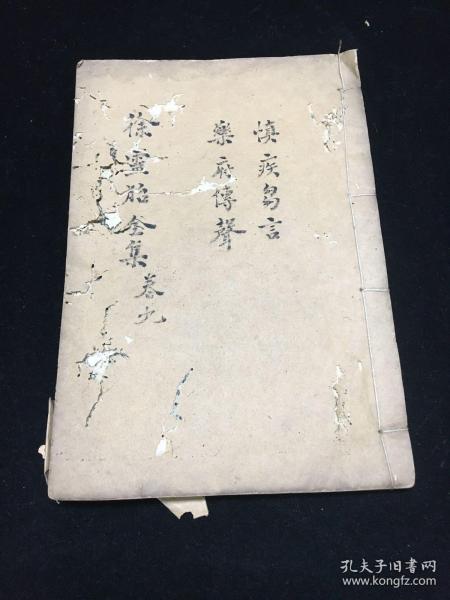 慎疾芻言
樂府傳聲
徐靈胎全集 卷九
孔夫子旧书网
www.kongfz.com